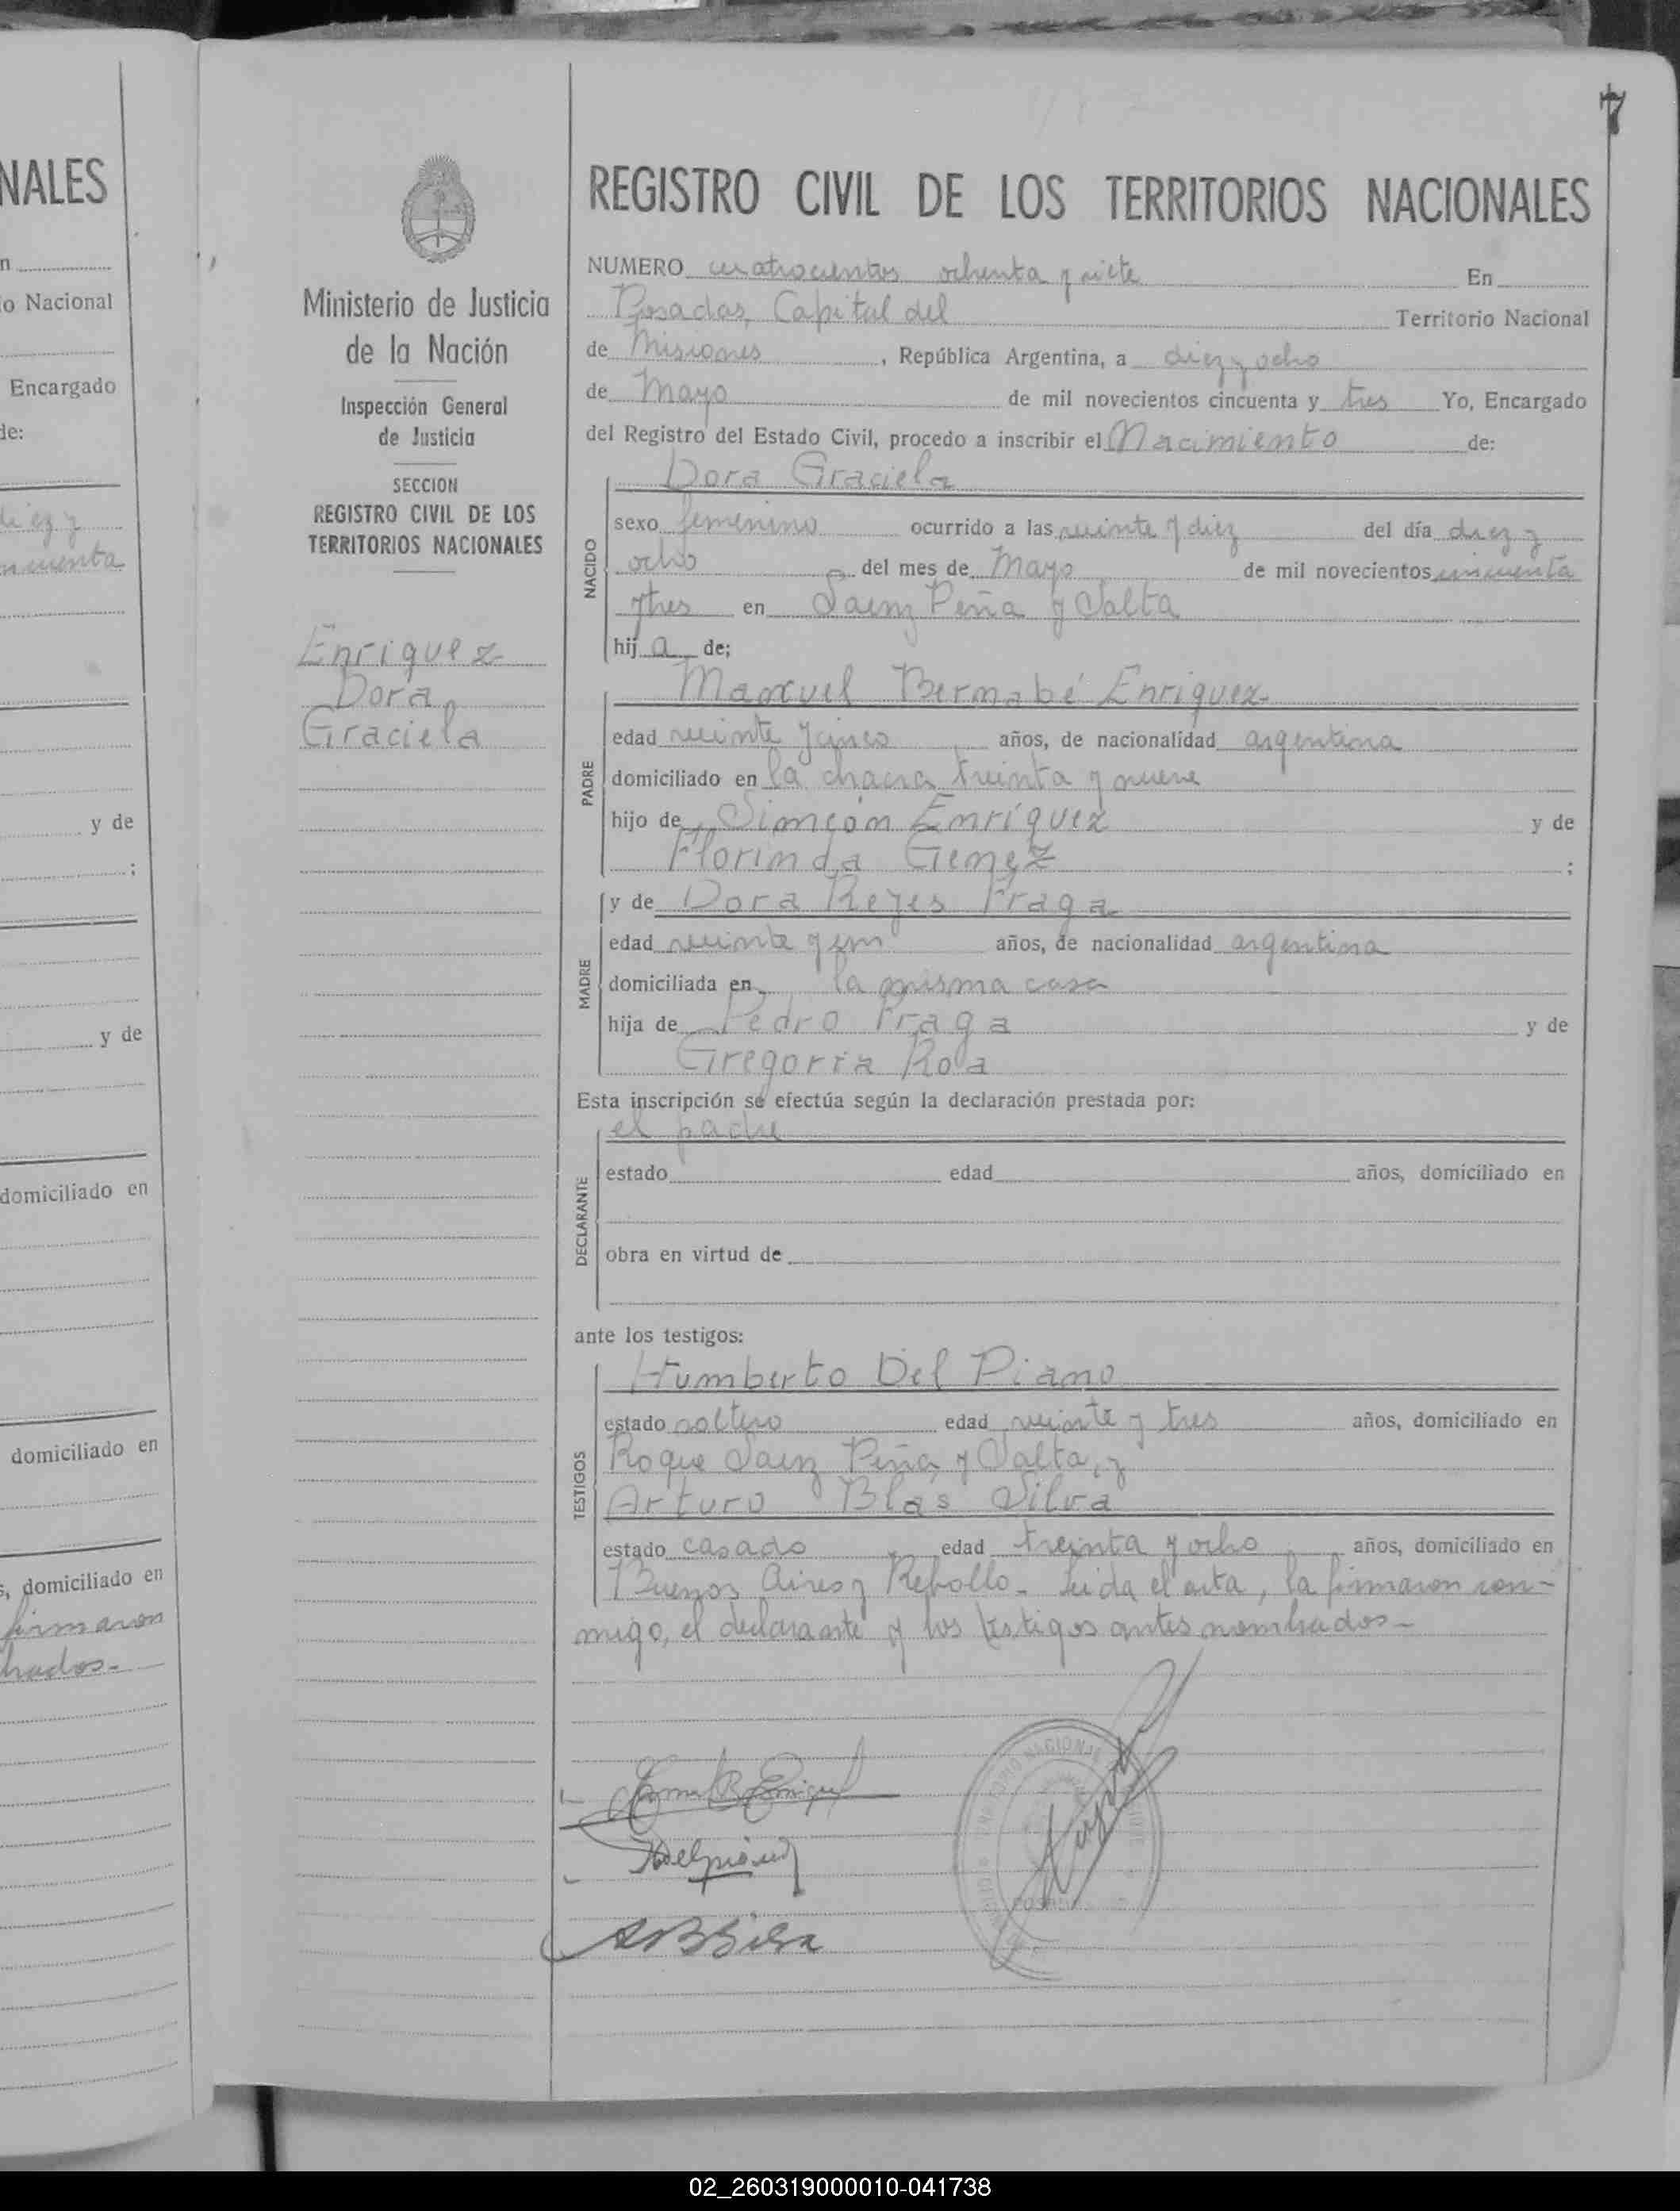 7
NALES
n
o Nacional
Encargado
de:
diez y
ncuenta
y de
;
y de
domiciliado en
domiciliado en
s, domiciliado en
firmaron
brados-
Ministerio de Justicia
de la Nación
Inspección General
de Justicia
SECCION
REGISTRO CIVIL DE LOS
TERRITORIOS NACIONALES
Enriquez
Dora
Graciela
REGISTRO CIVIL DE LOS TERRITORIOS NACIONALES
NUMERO cuatrocientos ochenta y siete En
Posadas, Capital del Territorio Nacional
de Misiones, República Argentina, a diez y ocho
de Mayo de mil novecientos cincuenta y tres Yo, Encargado
del Registro del Estado Civil, procedo a inscribir el Nacimiento de:
NACIDO
Dora Graciela
sexo femenino ocurrido a las veinte y diez del día diez y
ocho del mes de Mayo de mil novecientos cincuenta
y tres en Saenz Peña y Salta
hij a de;
PADRE
Manuel Bernabé Enriquez
edad veinte y cinco años, de nacionalidad argentina
domiciliado en la chacra treinta y nueve
hijo de Simeón Enríquez y de
Florinda Genez ;
MADRE
y de Dora Reyes Fraga
edad veinte y un años, de nacionalidad argentina
domiciliada en la misma casa
hija de Pedro Fraga y de
Gregoria Roa
Esta inscripción se efectúa según la declaración prestada por:
DECLARANTE
el padre
estado edad años, domiciliado en
obra en virtud de
ante los testigos:
TESTIGOS
Humberto Del Piano
estado soltero edad veinte y tres años, domiciliado en
Roque Saenz Peña y Salta, y
Arturo Blas Silva
estado casado edad treinta y ocho años, domiciliado en
Buenos Aires y Rebollo- Leida el acta, la firmaron con-
migo, el declarante y los testigos antes nombrados-
B Enriquez
HDelpiano
ABSilva
NACIONAL
02_260319000010-041738